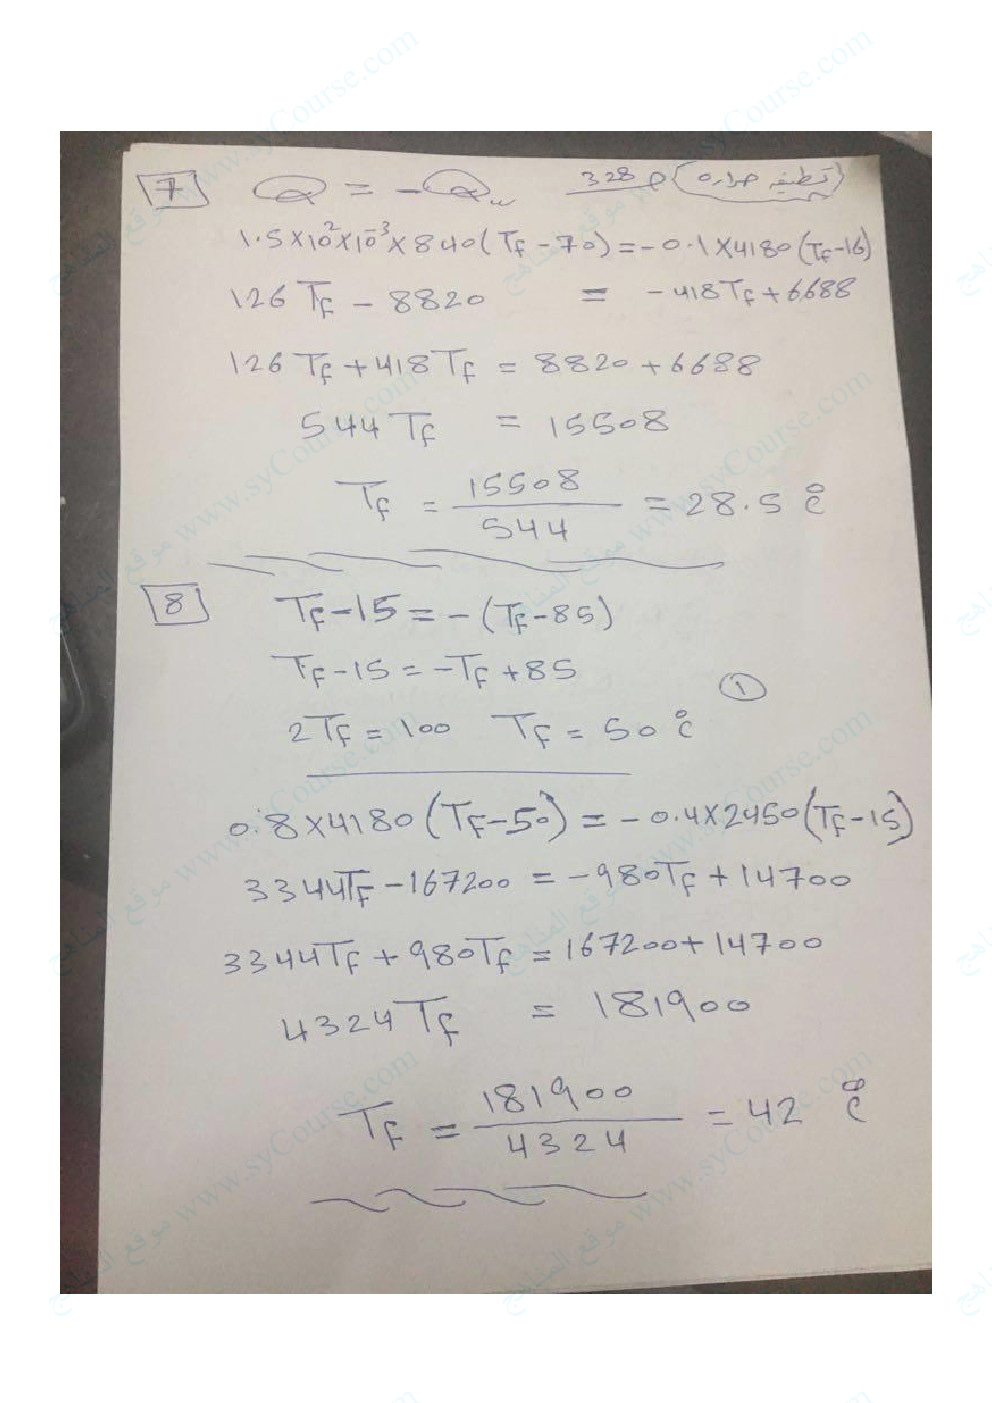 7 Q = - Qw 328 ص (تطبيقه حراره)
1.5×10²×10⁻³×840(Tf-70)=-0.1×4180(Tf-16)
126Tf - 8820 = -418Tf+6688
126Tf+418Tf = 8820+6688
544Tf = 15508
Tf = 15508/544 = 28.5 °C
8 Tf-15=-(Tf-85)
Tf-15=-Tf+85
①
2Tf=100 Tf=50 °C
0.8×4180(Tf-50)=-0.4×2450(Tf-15)
3344Tf-167200=-980Tf+14700
3344Tf+980Tf=167200+14700
4324Tf = 181900
Tf = 181900/4324 = 42 °C
موقع المناهج www.syCourse.com